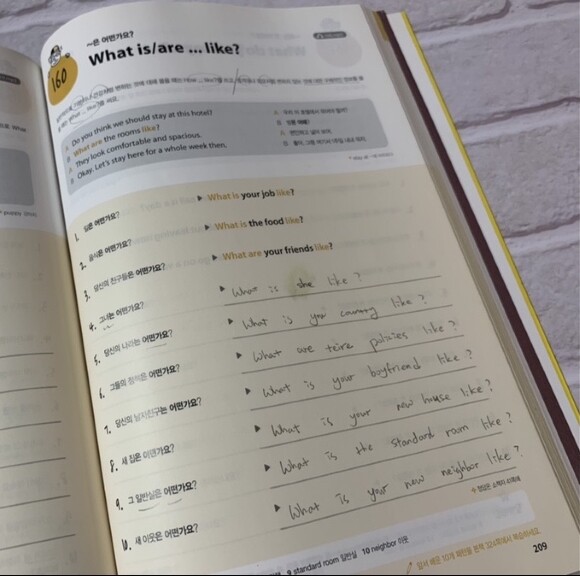 ~은 어떤가요?
160
What is/are ... like?
A Do you think we should stay at this hotel?
B What are the rooms like?
A They look comfortable and spacious.
B Okay. Let's stay here for a whole week then.
1. 일은 어떤가요?
▶ What is your job like?
2. 음식은 어떤가요?
▶ What is the food like?
3. 당신의 친구들은 어떤가요?
▶ What are your friends like?
4. 그녀는 어떤가요?
▶ What is she like?
5. 당신의 나라는 어떤가요?
▶ What is your country like?
6. 그들의 정책은 어떤가요?
▶ What are teire policies like?
7. 당신의 남자친구는 어떤가요?
▶ What is your boyfriend like?
8. 새 집은 어떤가요?
▶ What is your new house like?
9. 그 일반실은 어떤가요?
▶ What is the standard room like?
10. 새 이웃은 어떤가요?
▶ What is your new neighbor like?
9 standard room 일반실 10 neighbor 이웃
209